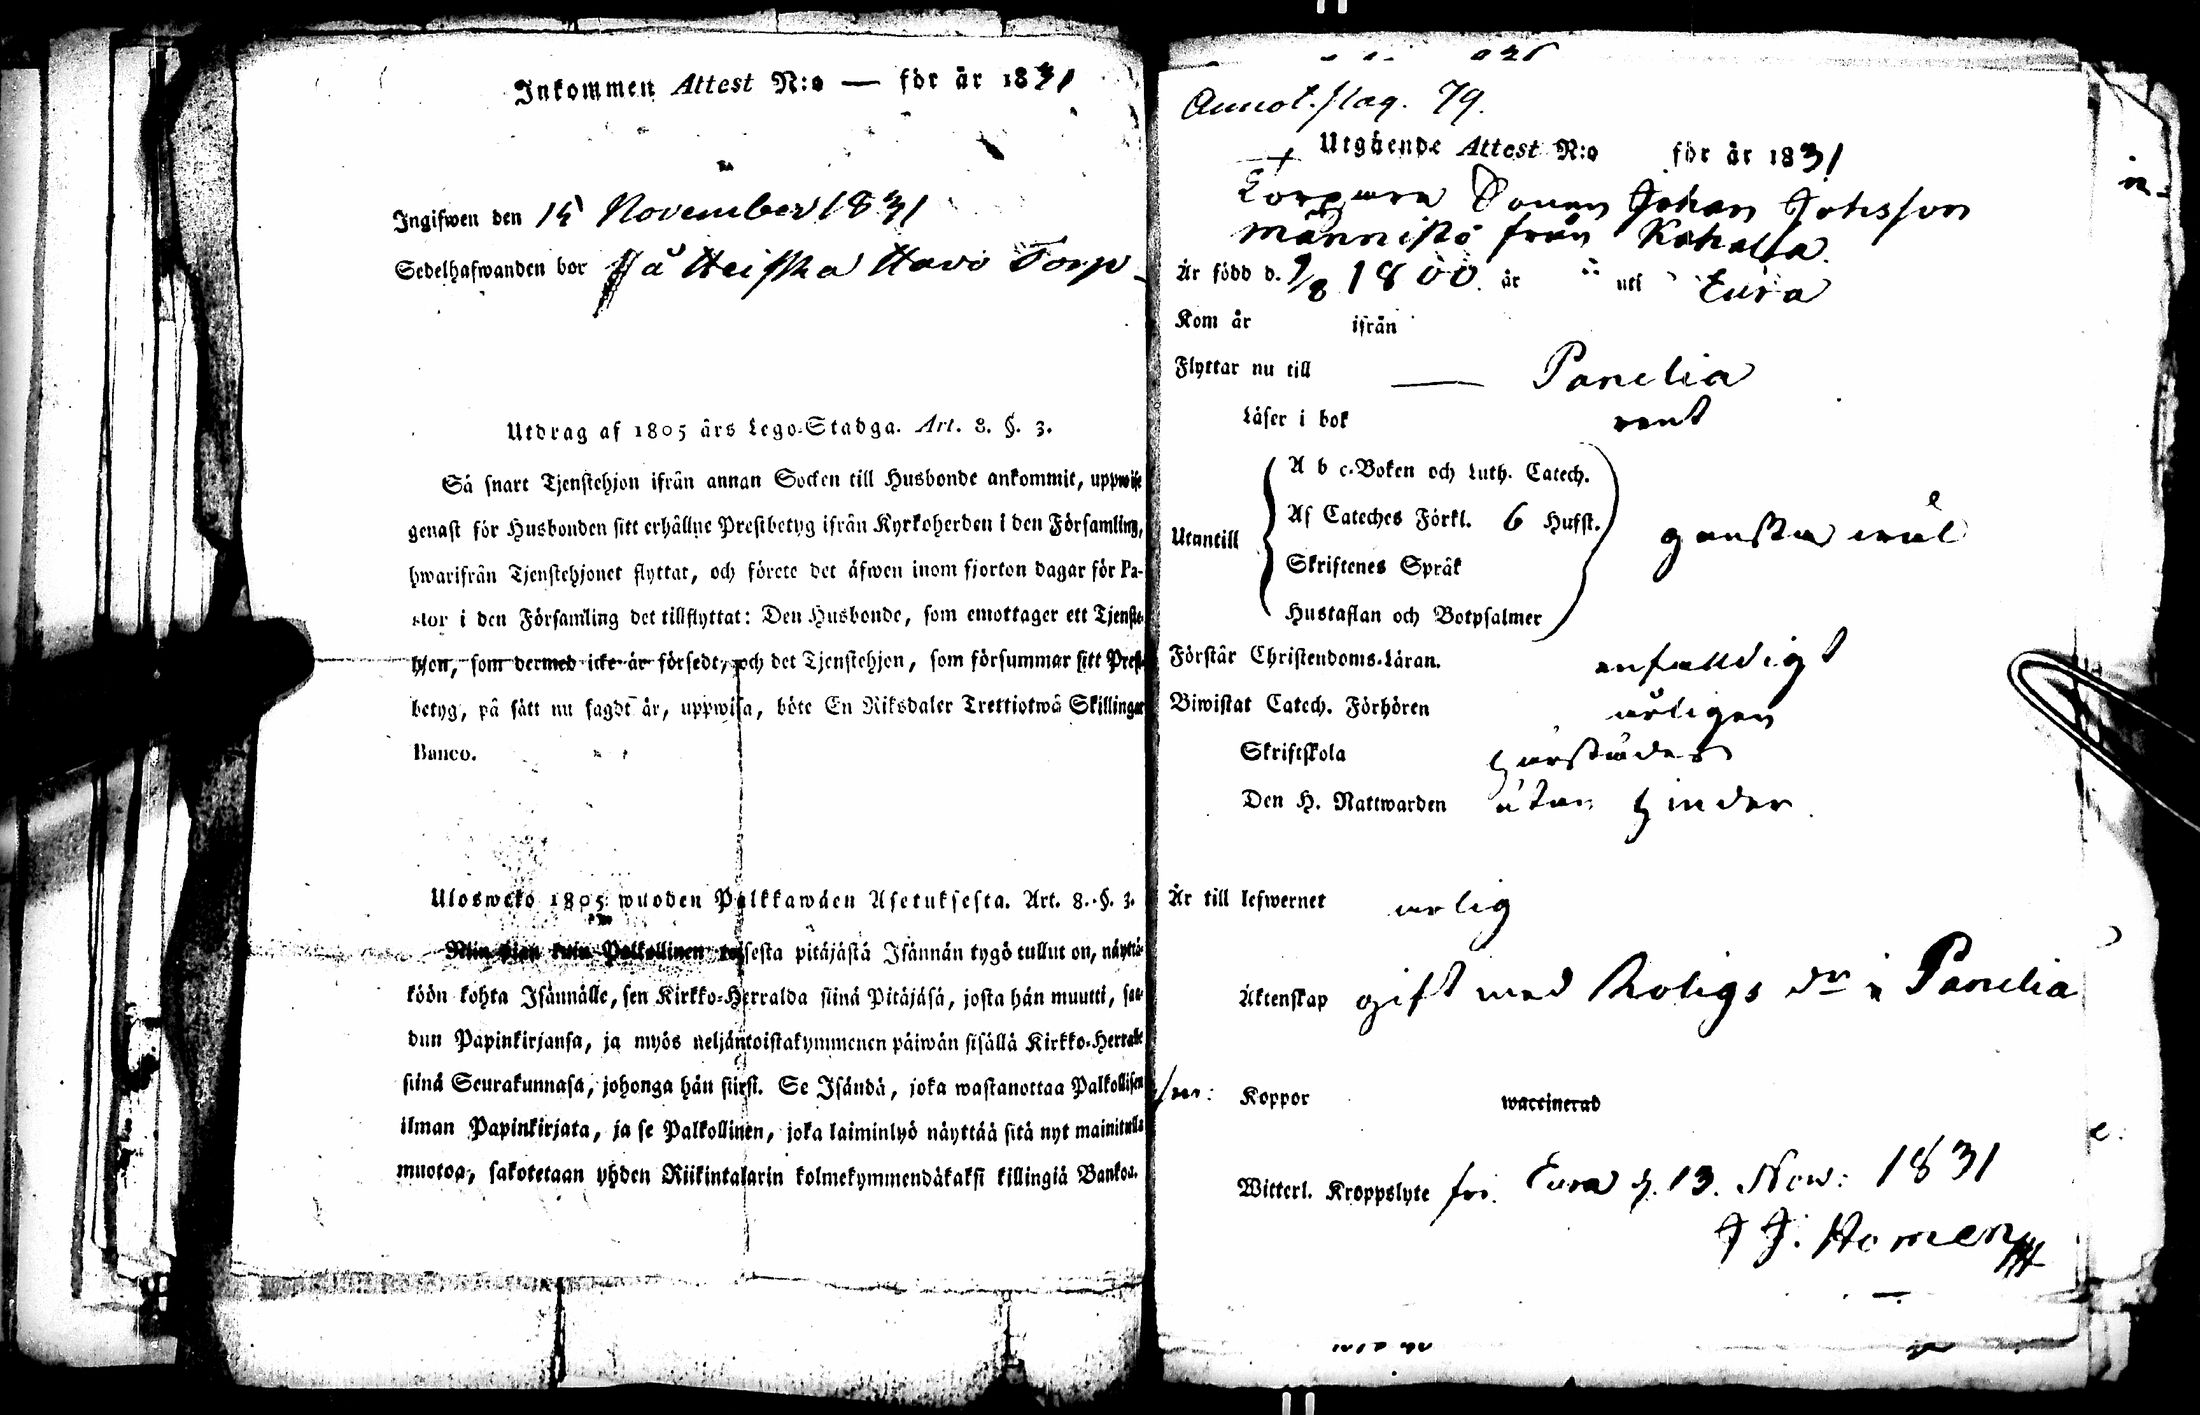 Inkommen Attest N:o — för år 1831
Ingifwen den 15 November 1831
Sedelhafwanden bor På Heiska Havo Torp
Utdrag af 1805 års Lego-Stadga. Art. 8. §. 3.
Så snart Tjenstehjon ifrån annan Socken till Husbonde ankommit, uppwise
genast för Husbonden sitt erhållne Prestbetyg ifrån Kyrkoherden i den Församling,
hwarifrån Tjenstehjonet flyttat, och förete det äfwen inom fjorton dagar för Pa-
stor i den Församling det tillflyttat: Den Husbonde, som emottager ett Tjenste-
hjon, som dermed icke är försedt, och det Tjenstehjon, som försummar sitt Prest-
betyg, på sätt nu sagdt är, uppwisa, böte En Riksdaler Trettiotwå Skillingar
Banco.
Ulosweto 1805 wuoden Palkkawäen Asetuksesta. Art. 8. §. 3.
Niin pian kuin Palkollinen toisesta pitäjästä Isännän tygö tullut on, näyttä-
köön kohta Isännälle, sen Kirkko-Herralda siinä Pitäjäsä, josta hän muutti, saa-
dun Papinkirjansa, ja myös neljäntoistakymmenen päiwän sisällä Kirkko-Herralle
siinä Seurakunnasa, johonga hän siirsi. Se Isändä, joka wastanottaa Palkollisen
ilman Papinkirjata, ja se Palkollinen, joka laiminlyö näyttää sitä nyt mainitulla
muotoa, sakotetaan yhden Riikintalarin kolmekymmendäkaksi killingiä Bankoa.
Annot. pag. 79.
Utgående Attest N:o för år 1831
Torpare Sonen Johan Johsson
Männistö från Kahala
Är född d. 9/8 1800 år uti Eura
Kom år ifrån
Flyttar nu till — Panelia
Läser i bok rent
A b c-Boken och Luth. Catech.
Af Cateches Förkl. 6 Hufst.
Utantill ganska wäl
Skriftenes Språk
Hustaflan och Botpsalmer
Förstår Christendoms-Läran. enfaldigt
Biwistat Catech. Förhören årligen
Skriftskola härstädes
Den H. Nattwarden utan hinder
Är till lefwernet ärlig
Äktenskap gift med Roligs dr i Panelia
Koppor waccinerad
Witterl. Kroppslyte fri. Eura d. 13. Nov: 1831
J J. Homen